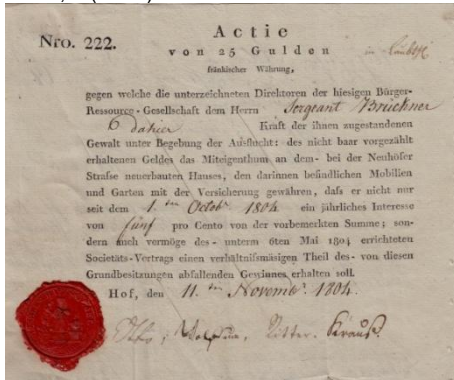 Nro. 222.
Actie
von 25 Gulden
fränkischer Währung,
gegen welche die unterzeichneten Direktoren der hiesigen Bürger-
Ressource-Gesellschaft dem Herrn Sergeant Brückner
dahier Kraft der ihnen zugestandenen
Gewalt unter Begebung der Ausflucht: des nicht baar vorgezählt
erhaltenen Geldes das Miteigenthum an dem- bei der Neuhöfer
Strasse neuerbauten Hauses, den darinnen befindlichen Mobilien
und Garten mit der Versicherung gewähren, daſs er nicht nur
seit dem 1.ten Octobr 1804 ein jährliches Interesse
von fünf pro Cento von der vorbemerkten Summe; son-
dern auch vermöge des- unterm 6ten Mai 1804 errichteten
Societäts-Vertrags einen verhältniſsmäsigen Theil des- von diesen
Grundbesitzungen abfallenden Gewinnes, erhalten soll.
Hof, den 11.ten Novembr. 1804.
Ritter. Krauß.